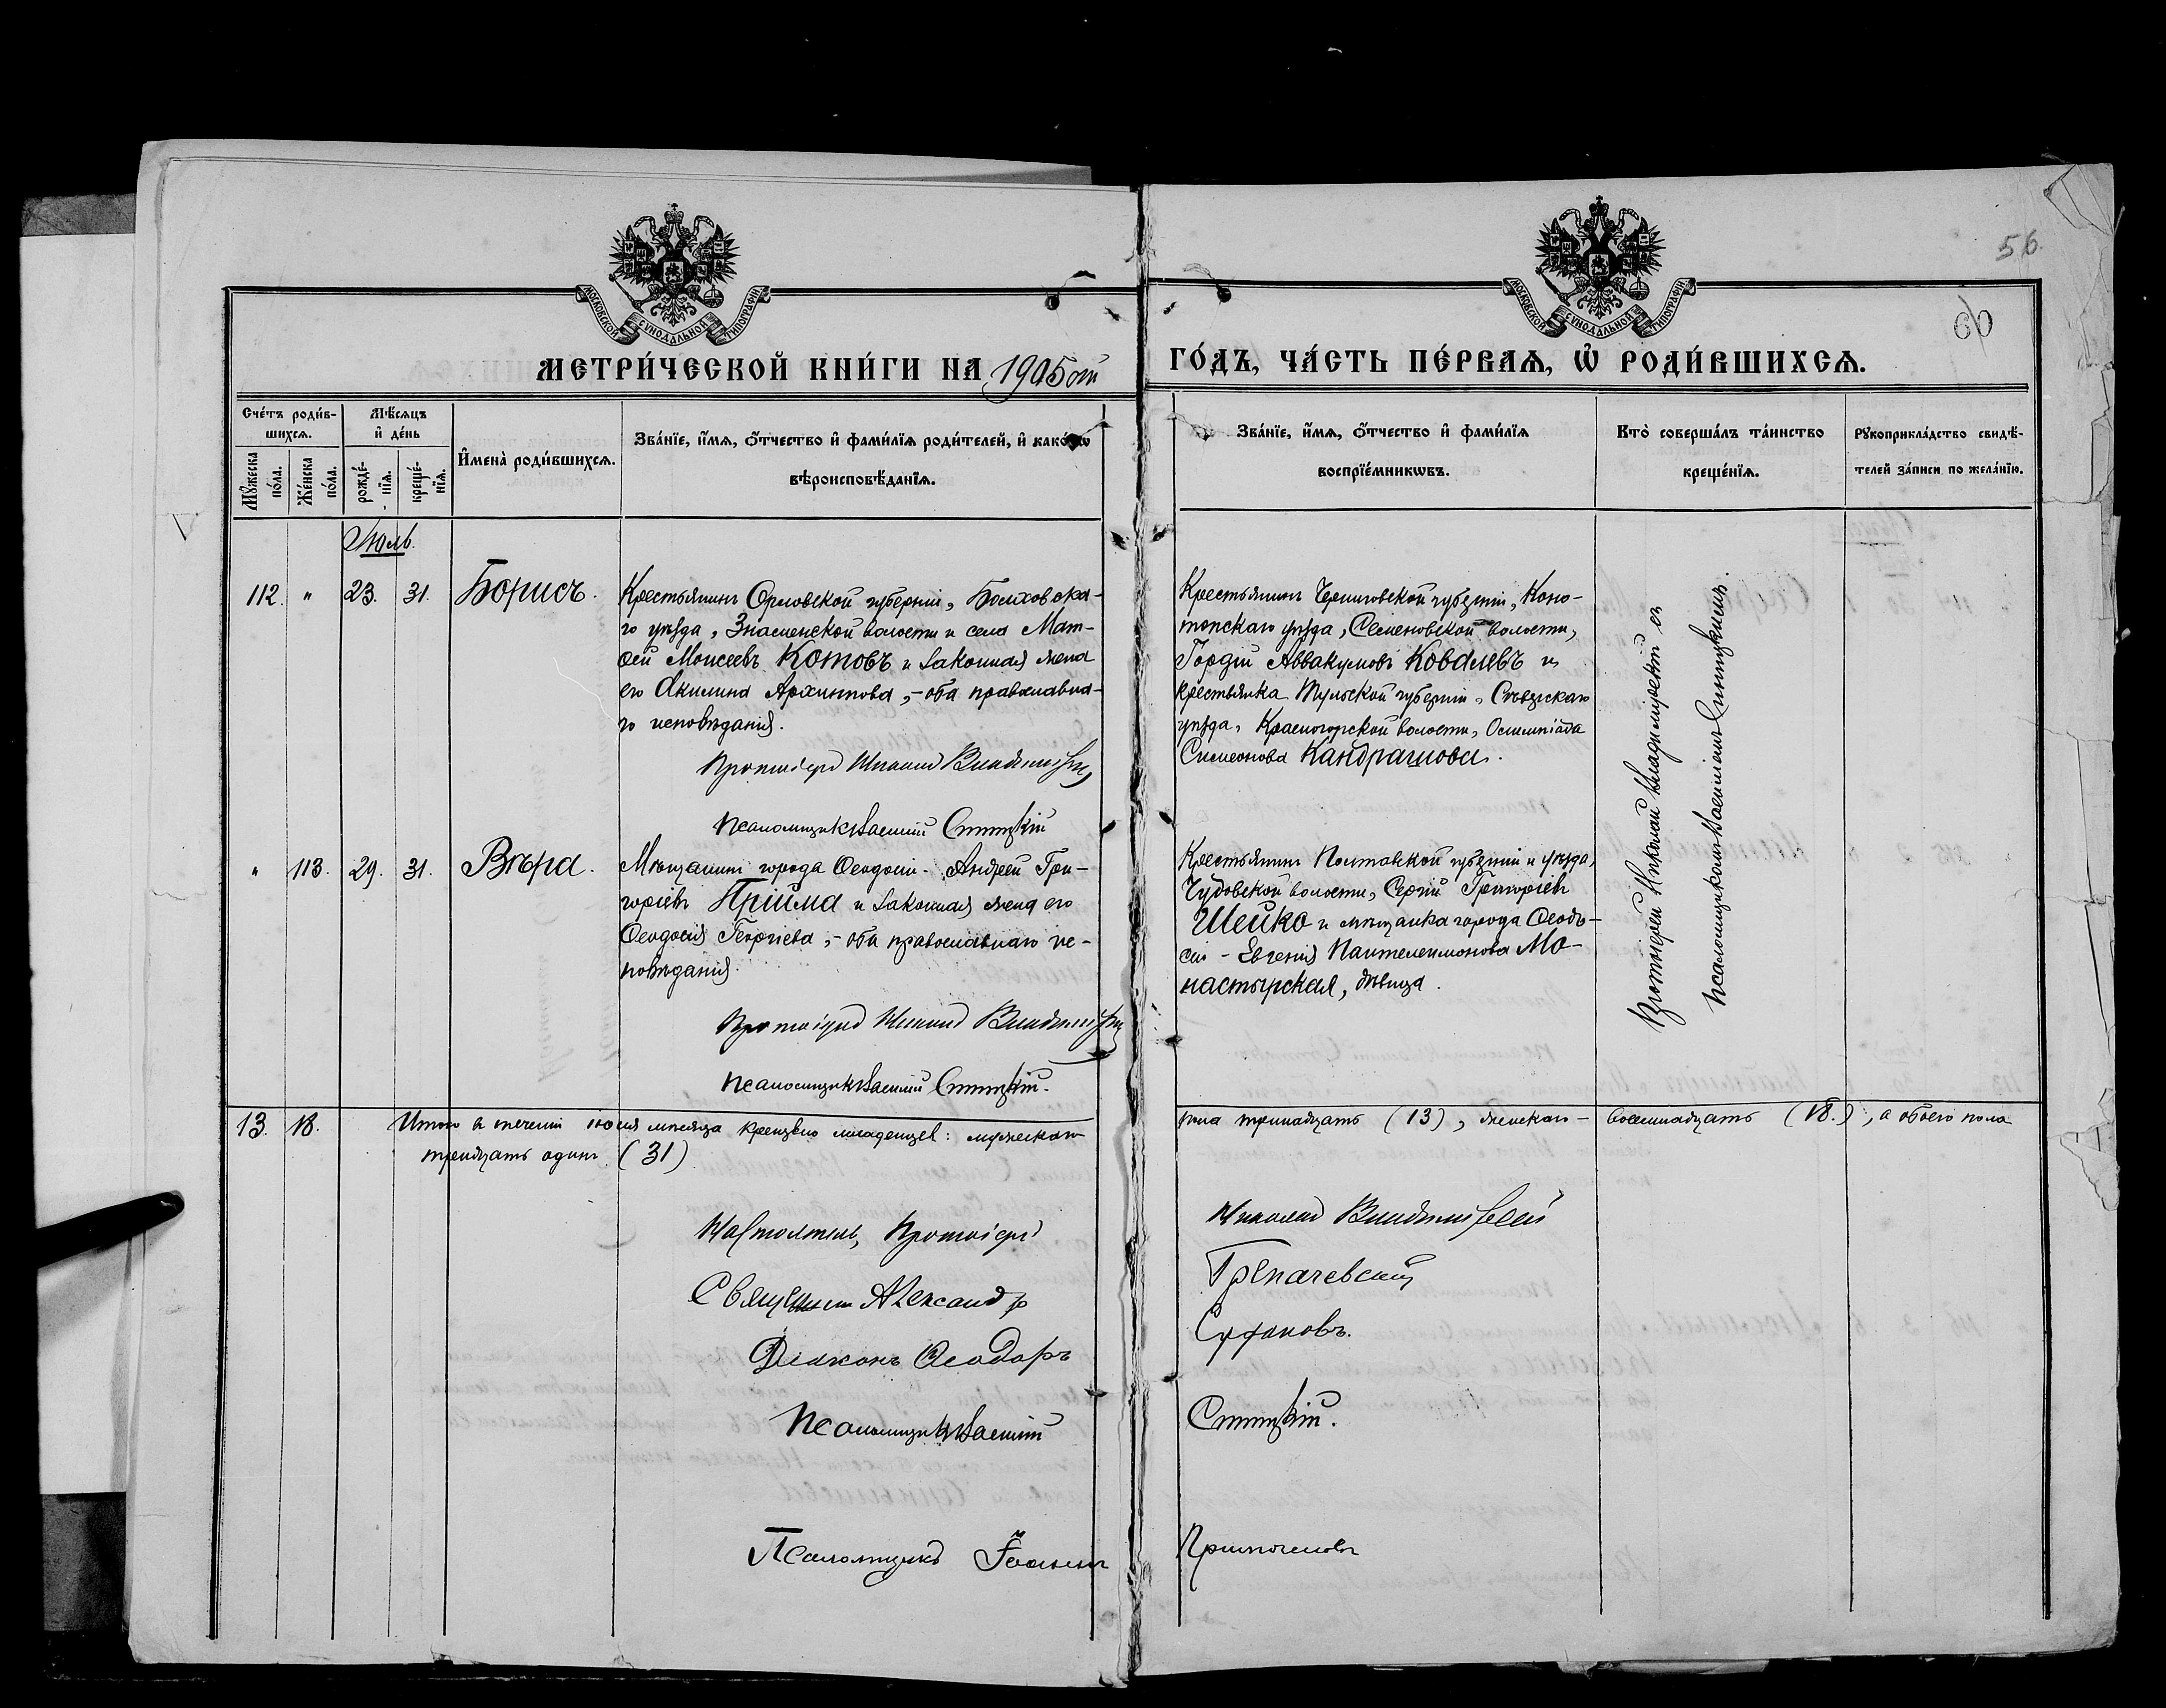 56.
60
МОСКОВСКОЙ СѴНОДАЛЬНОЙ ТИПОГРАФІИ
МОСКОВСКОЙ СѴНОДАЛЬНОЙ ТИПОГРАФІИ
МЕТРИ́ЧЕСКОЙ КНИ́ГИ НА 1905 ый
ГО́ДЪ, ЧА́СТЬ ПЕ́РВАЯ, Ѡ҆ РОДИ́ВШИХСЯ.
Сче́тъ роди́в-
шихся.
Мꙋ́жеска по́ла.
Же́нска по́ла.
Мѣ́сяцъ
и҆ де́нь
рожде́-нїя.
креще́-нїя.
И҆мена̀ роди́вшихся.
Зва́нїе, и҆́мя, ѻ҆́тчество и҆ фами́лїя роди́телей, и҆ како́гѡ
вѣроисповѣ́данїя.
Зва́нїе, и҆́мя, ѻ҆́тчество и҆ фами́лїя
воспрїе́мникѡвъ.
Кто̀ соверша́лъ та́инство
креще́нїя.
Рꙋкоприкла́дство свидѣ́-
телей за́писи по жела́нїю.
Июль.
112. " 23. 31. Борисъ.
Крестьянинъ Орловской губерніи, Болховска-
го уѣзда, Знаменской волости и села Мат-
ѳей Моисеевъ Котовъ и законная жена
его Акилина Архипова, - оба православна-
го исповѣданія.
Протоіерей Николай Владимірскій
Псаломщикъ Василій
Крестьянинъ Черниговской губерніи, Коно-
топскаго уѣзда, Семеновской волости,
Гордій Аввакумовъ Ковалевъ и
крестьянка Тульской губерніи,
уѣзда, Красногорской волости, Олимпіада
Симеонова Кандрашова.
Протоіерей Николай Владимірскій съ
псаломщикомъ Василіемъ
" 113. 29. 31. Вѣра.
Мѣщанинъ города Ѳеодосіи - Андрей Гри-
горіевъ Пріима и законная жена его
Ѳеодосія Георгіева, - оба православнаго ис-
повѣданія.
Протоіерей Николай Владимірскій
Псаломщикъ Василій
Крестьянинъ Полтавской губерніи и уѣзда,
Чудовской волости, Сергій Григоріевъ
Шейко и мѣщанка города Ѳеодо-
сіи - Евгенія Пантелеимонова Мо-
настырская, дѣвица.
13. 18. Итого въ теченіи іюля мѣсяца крещено младенцевъ: мужескаго пола тринадцать (13), женскаго - восемнадцать (18.), а обоего пола
тридцать одинъ (31)
Настоятель, Протоіерей Николай Владимірскій
Священникъ Александр
Діаконъ Ѳеодоръ
Псаломщикъ Василій
Псаломщикъ Іоаннъ